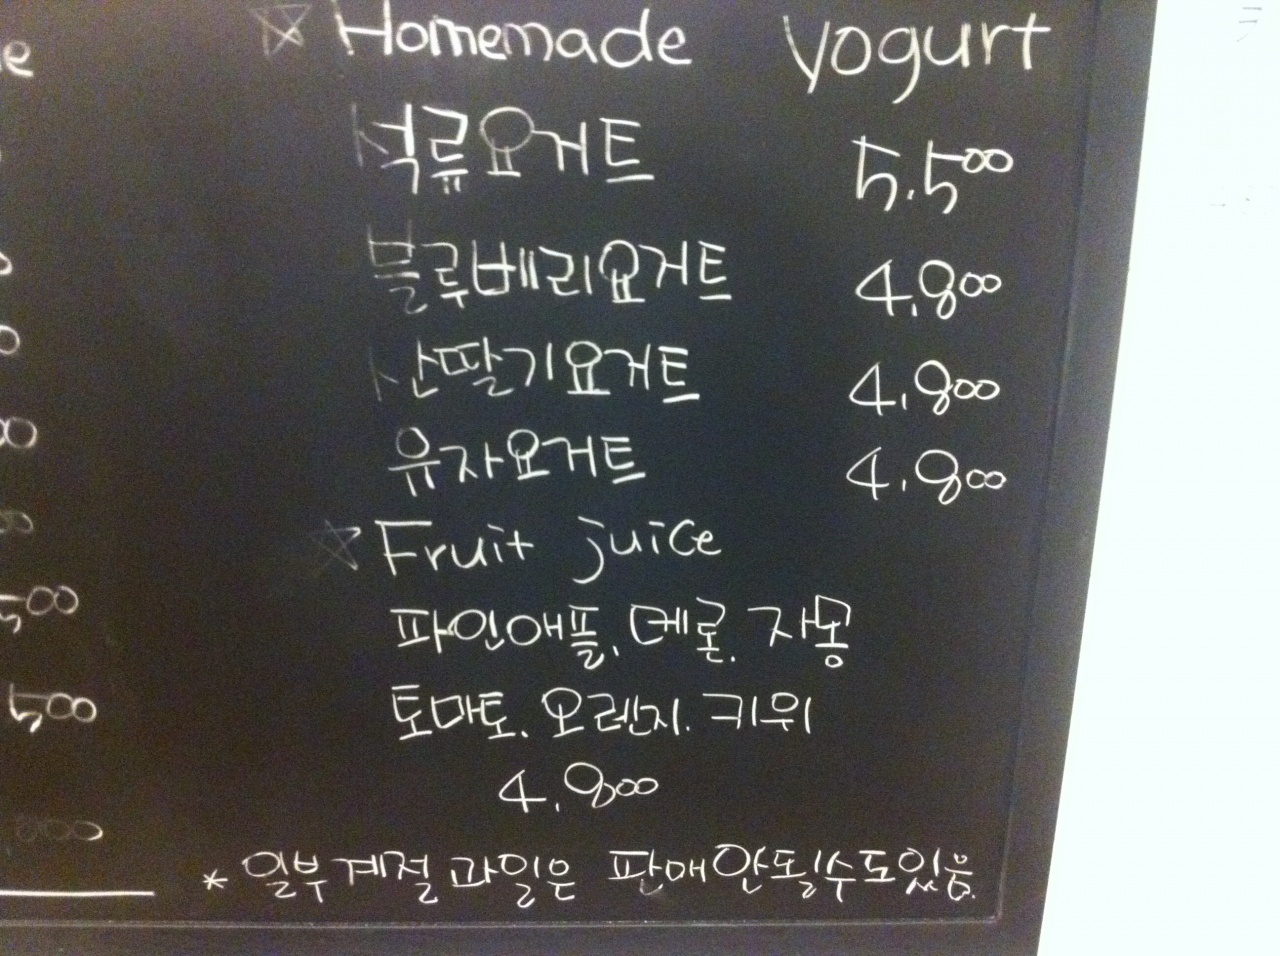 e
☆ Homemade yogurt
석류요거트 5.500
블루베리요거트 4.800
산딸기요거트 4.800
유자요거트 4.800
☆ Fruit juice
파인애플. 메론. 자몽
토마토. 오렌지. 키위
4.800
* 일부 계절 과일은 판매 안 될 수도 있음.
500
500
000